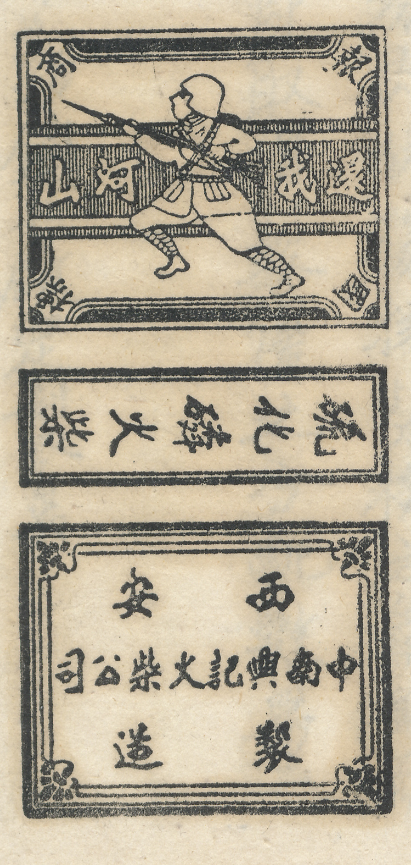 報國商標
還我河山
硫化磷火柴
西安
中南興記火柴公司
製造